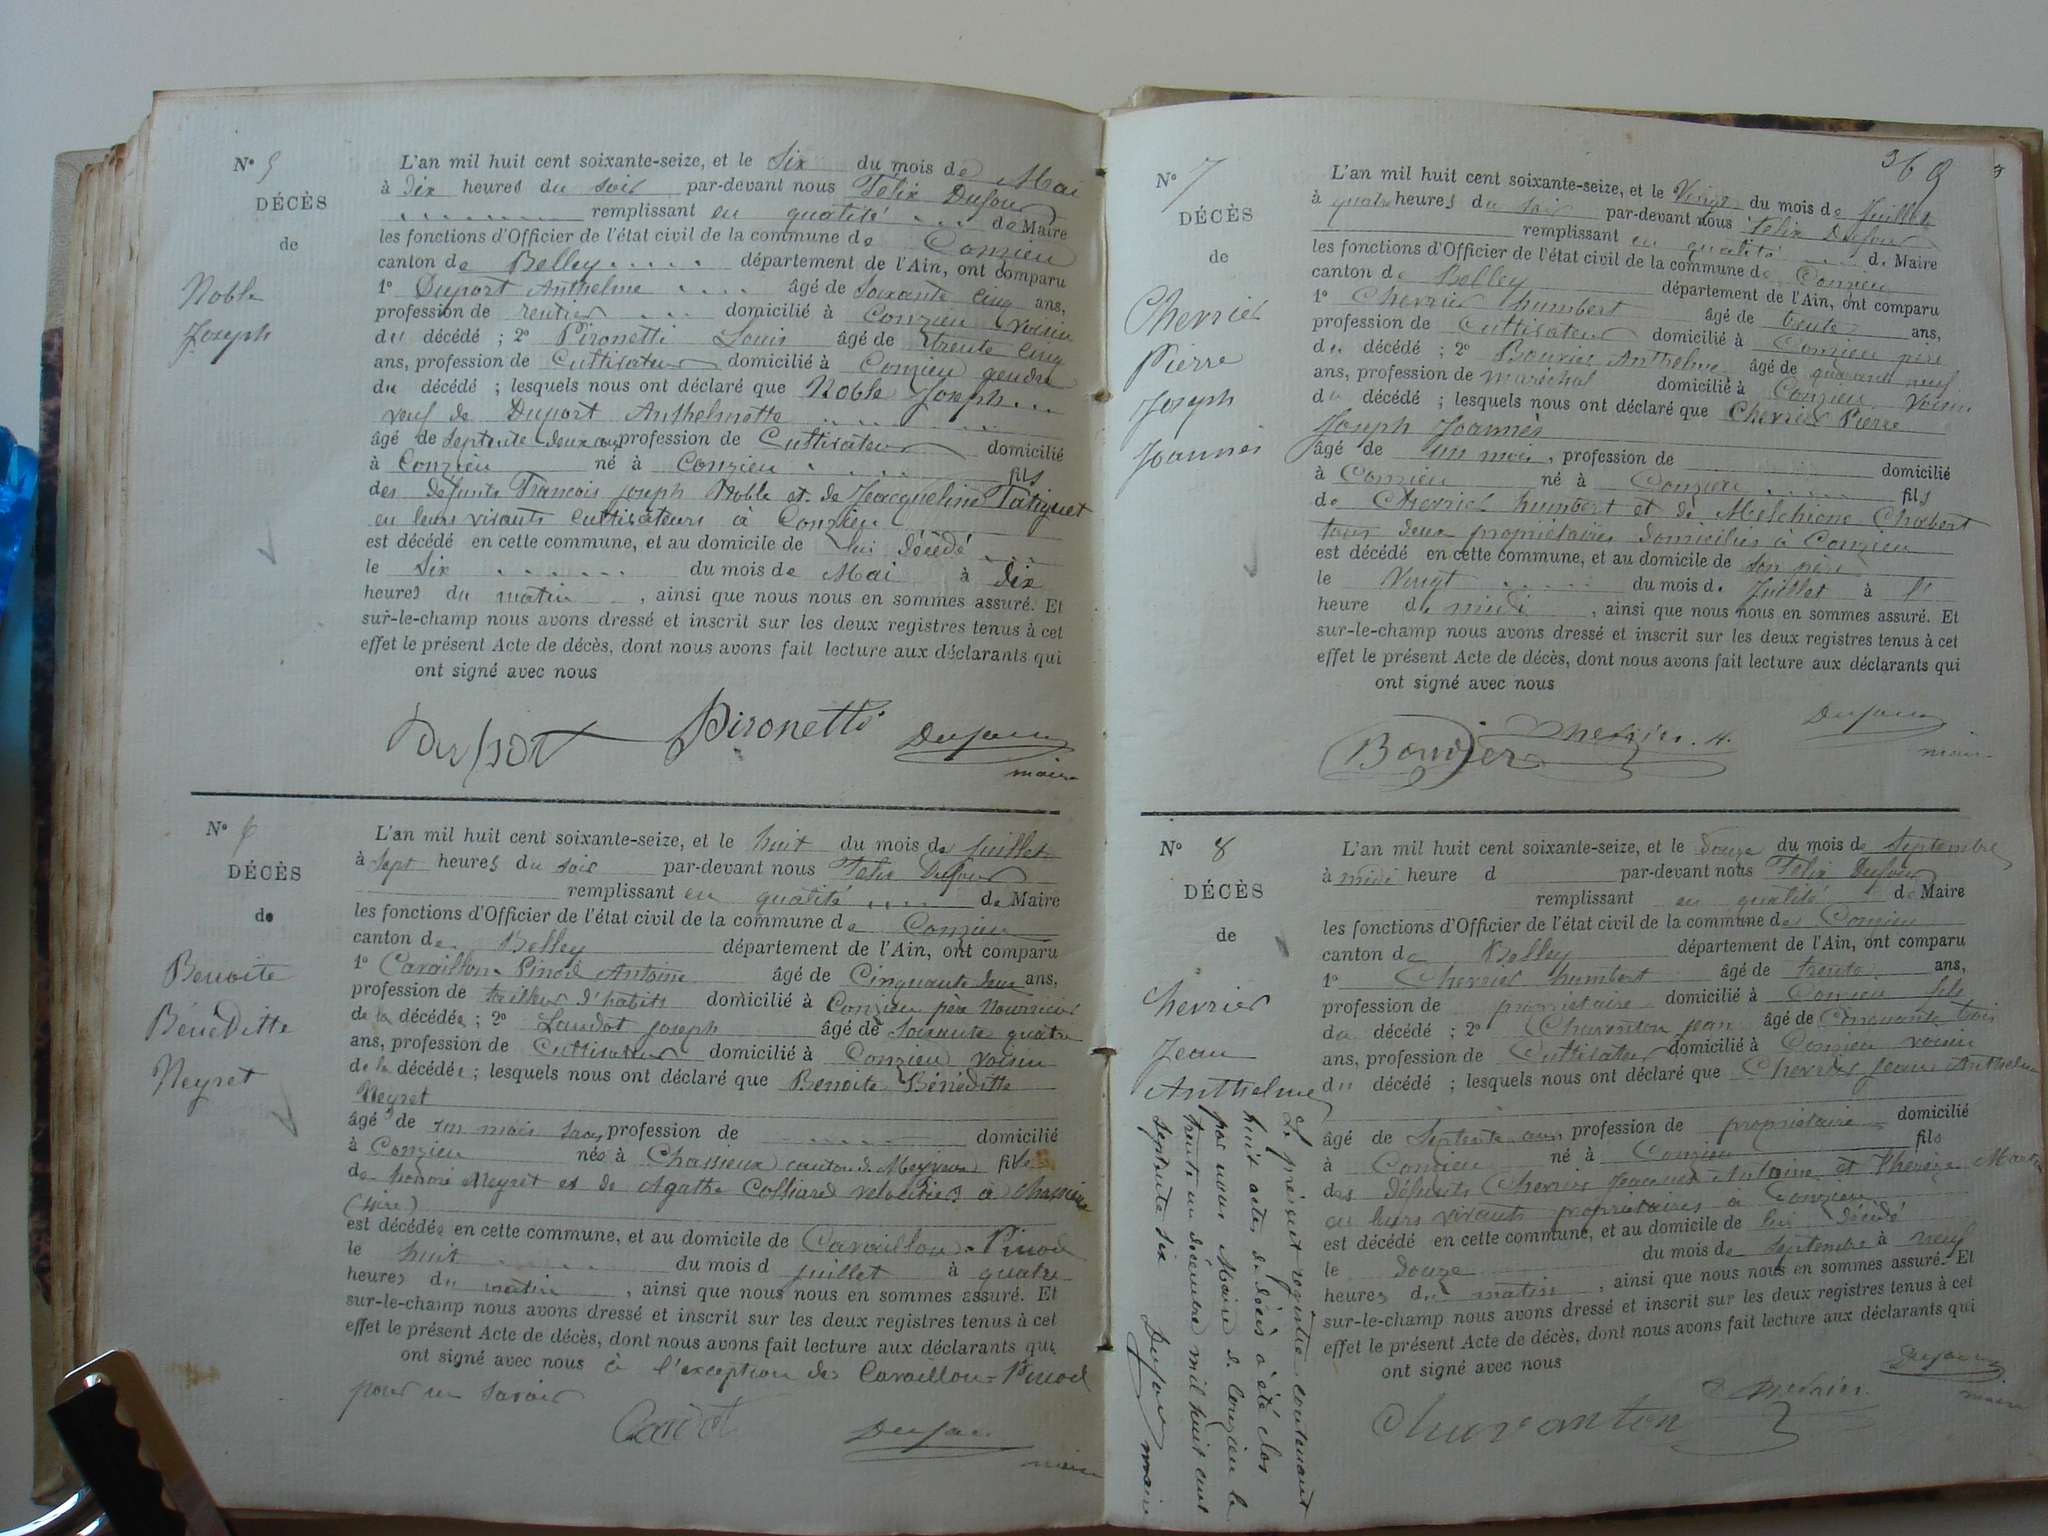 N° 5
DÉCÈS
de
Noble
Joseph
L'an mil huit cent soixante-seize, et le Six du mois de Mai
à dix heures du soir par-devant nous Felix Dufour
remplissant en qualité de Maire
les fonctions d'Officier de l'état civil de la commune de Conzieu
canton de Belley département de l'Ain, ont comparu
1° Duport Anthelme âgé de Soixante cinq ans,
profession de rentier domicilié à Conzieu voisin
du décédé ; 2° Pironetti Louis âgé de trente cinq
ans, profession de Cultivateur domicilié à Conzieu gendre
du décédé ; lesquels nous ont déclaré que Noble Joseph
veuf de Duport Anthelmette
âgé de septente deux ans profession de Cultivateur domicilié
à Conzieu né à Conzieu fils
des defunts Francois joseph Noble et de Jacqueline Tatiguet
en leurs vivants cultivateurs à Conzieu
est décédé en cette commune, et au domicile de lui décédé
le six du mois de Mai à dix
heures du matin , ainsi que nous nous en sommes assuré. Et
sur-le-champ nous avons dressé et inscrit sur les deux registres tenus à cet
effet le présent Acte de décès, dont nous avons fait lecture aux déclarants qui
ont signé avec nous
Duport Pironetti Dufour
maire
N° 6
DÉCÈS
de
Benoite
Bénéditte
Neyret
L'an mil huit cent soixante-seize, et le huit du mois de Juillet
à sept heures du soir par-devant nous Felix Dufour
remplissant en qualité de Maire
les fonctions d'Officier de l'état civil de la commune de Conzieu
canton de Belley département de l'Ain, ont comparu
1° Cavaillon-Pinod Antoine âgé de Cinquante deux ans,
profession de tailleur d'habits domicilié à Conzieu père Nourricier
de la décédée ; 2° Landot joseph âgé de Soixante quatre
ans, profession de Cultivateur domicilié à Conzieu voisin
de la décédée ; lesquels nous ont déclaré que Benoite Bénéditte
Neyret
âgé de un mois profession de domicilié
à Conzieu née à Chassieux canton de fille
de Neyret et de Agathe Colliard à
(isère)
est décédée en cette commune, et au domicile de Cavaillon-Pinod
le huit du mois d juillet à quatre
heures du matin , ainsi que nous nous en sommes assuré. Et
sur-le-champ nous avons dressé et inscrit sur les deux registres tenus à cet
effet le présent Acte de décès, dont nous avons fait lecture aux déclarants qui
ont signé avec nous à l'exception de Cavaillon-Pinod
pour ne savoir
Dufour
maire
369
N° 7
DÉCÈS
de
Chevrier
Pierre
Joseph
Joannès
L'an mil huit cent soixante-seize, et le Vingt du mois de Juillet
à quatre heures du soir par-devant nous Felix Dufour
remplissant en qualité de Maire
les fonctions d'Officier de l'état civil de la commune de Conzieu
canton de Belley département de l'Ain, ont comparu
1° Chevrier humbert âgé de trente ans,
profession de Cultivateur domicilié à Conzieu père
du décédé ; 2° Bouvier Anthelme âgé de quarante neuf
ans, profession de maréchal domicilié à Conzieu voisin
du décédé ; lesquels nous ont déclaré que Chevrier Pierre
Joseph Joannès
âgé de un mois, profession de domicilié
à Conzieu né à Conzieu fils
de Chevrier humbert et de Melchione Chabert
tous deux propriétaires domiciliés à Conzieu
est décédé en cette commune, et au domicile de son père
le Vingt du mois de Juillet à l'
heure de midi , ainsi que nous nous en sommes assuré. Et
sur-le-champ nous avons dressé et inscrit sur les deux registres tenus à cet
effet le présent Acte de décès, dont nous avons fait lecture aux déclarants qui
ont signé avec nous
Bouvier Chevrier. H. Dufour
maire
N° 8
DÉCÈS
de
Chevrier
Jean
Anthelme
L'an mil huit cent soixante-seize, et le Douze du mois de Septembre
à midi heure d par-devant nous Felix Dufour
remplissant en qualité de Maire
les fonctions d'Officier de l'état civil de la commune de Conzieu
canton de Belley département de l'Ain, ont comparu
1° Chevrier humbert âgé de trente ans,
profession de propriétaire domicilié à Conzieu fils
du décédé ; 2° Charenton jean âgé de Cinquante trois
ans, profession de Cultivateur domicilié à Conzieu voisin
du décédé ; lesquels nous ont déclaré que Chevrier Jean Anthelme
âgé de Septente ans, profession de propriétaire domicilié
à Conzieu né à Conzieu fils
des défunts Chevrier Jacques Antoine et Therèze Martin
en leurs vivants propriétaires à Conzieu
est décédé en cette commune, et au domicile de lui décédé
le douze du mois de septembre à neuf
heures du matin , ainsi que nous nous en sommes assuré. Et
sur-le-champ nous avons dressé et inscrit sur les deux registres tenus à cet
effet le présent Acte de décès, dont nous avons fait lecture aux déclarants qui
ont signé avec nous
Charenton Chevrier Dufour
maire
Le présent registre contenant
huit actes de décès a été clos
par nous Maire de Conzieu le
trente un décembre mil huit cent
septente six Dufour maire